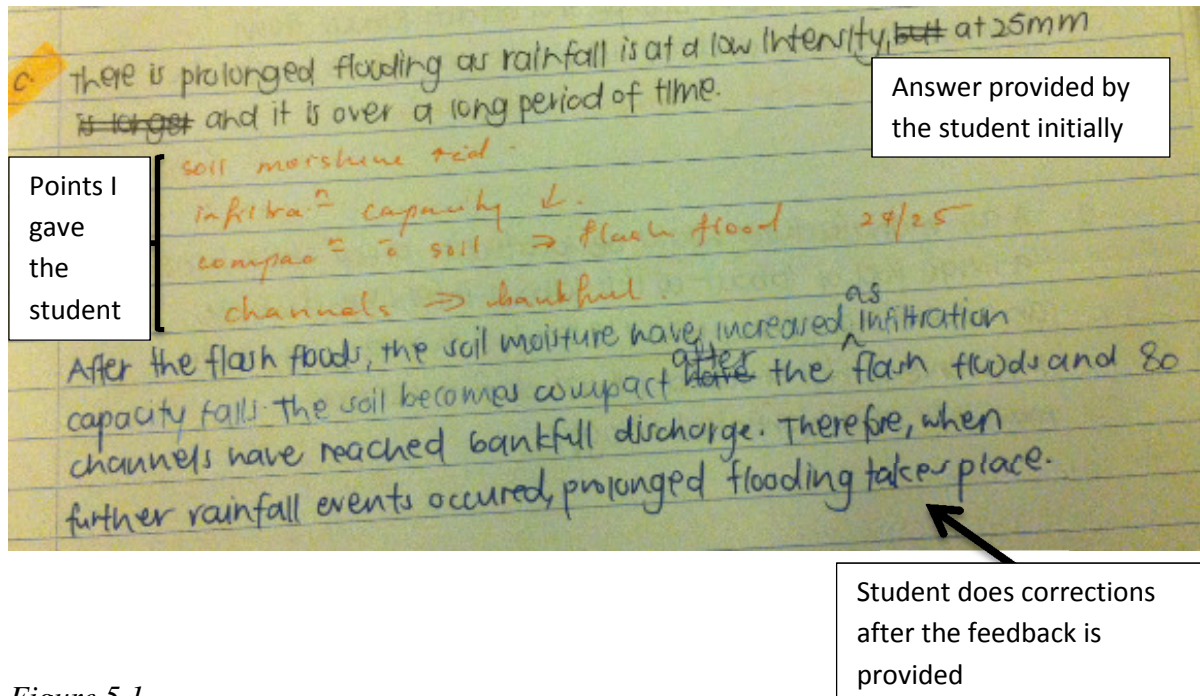 c. there is prolonged flooding as rainfall is at a low intensity, but at 25mm
is longer and it is over a long period of time.
Answer provided by
the student initially
Points I
gave
the
student
soil moisture
infiltraⁿ capacity ↓.
compacⁿ soil ⇒ flash flood 24/25
channels ⇒ bankfull.
After the flash floods, the soil moisture have increased, as infiltration
capacity falls. The soil becomes compact have after the flash floods and so
channels have reached bankfull discharge. Therefore, when
further rainfall events occured, prolonged flooding takes place.
Student does corrections
after the feedback is
provided
Figure 5.1